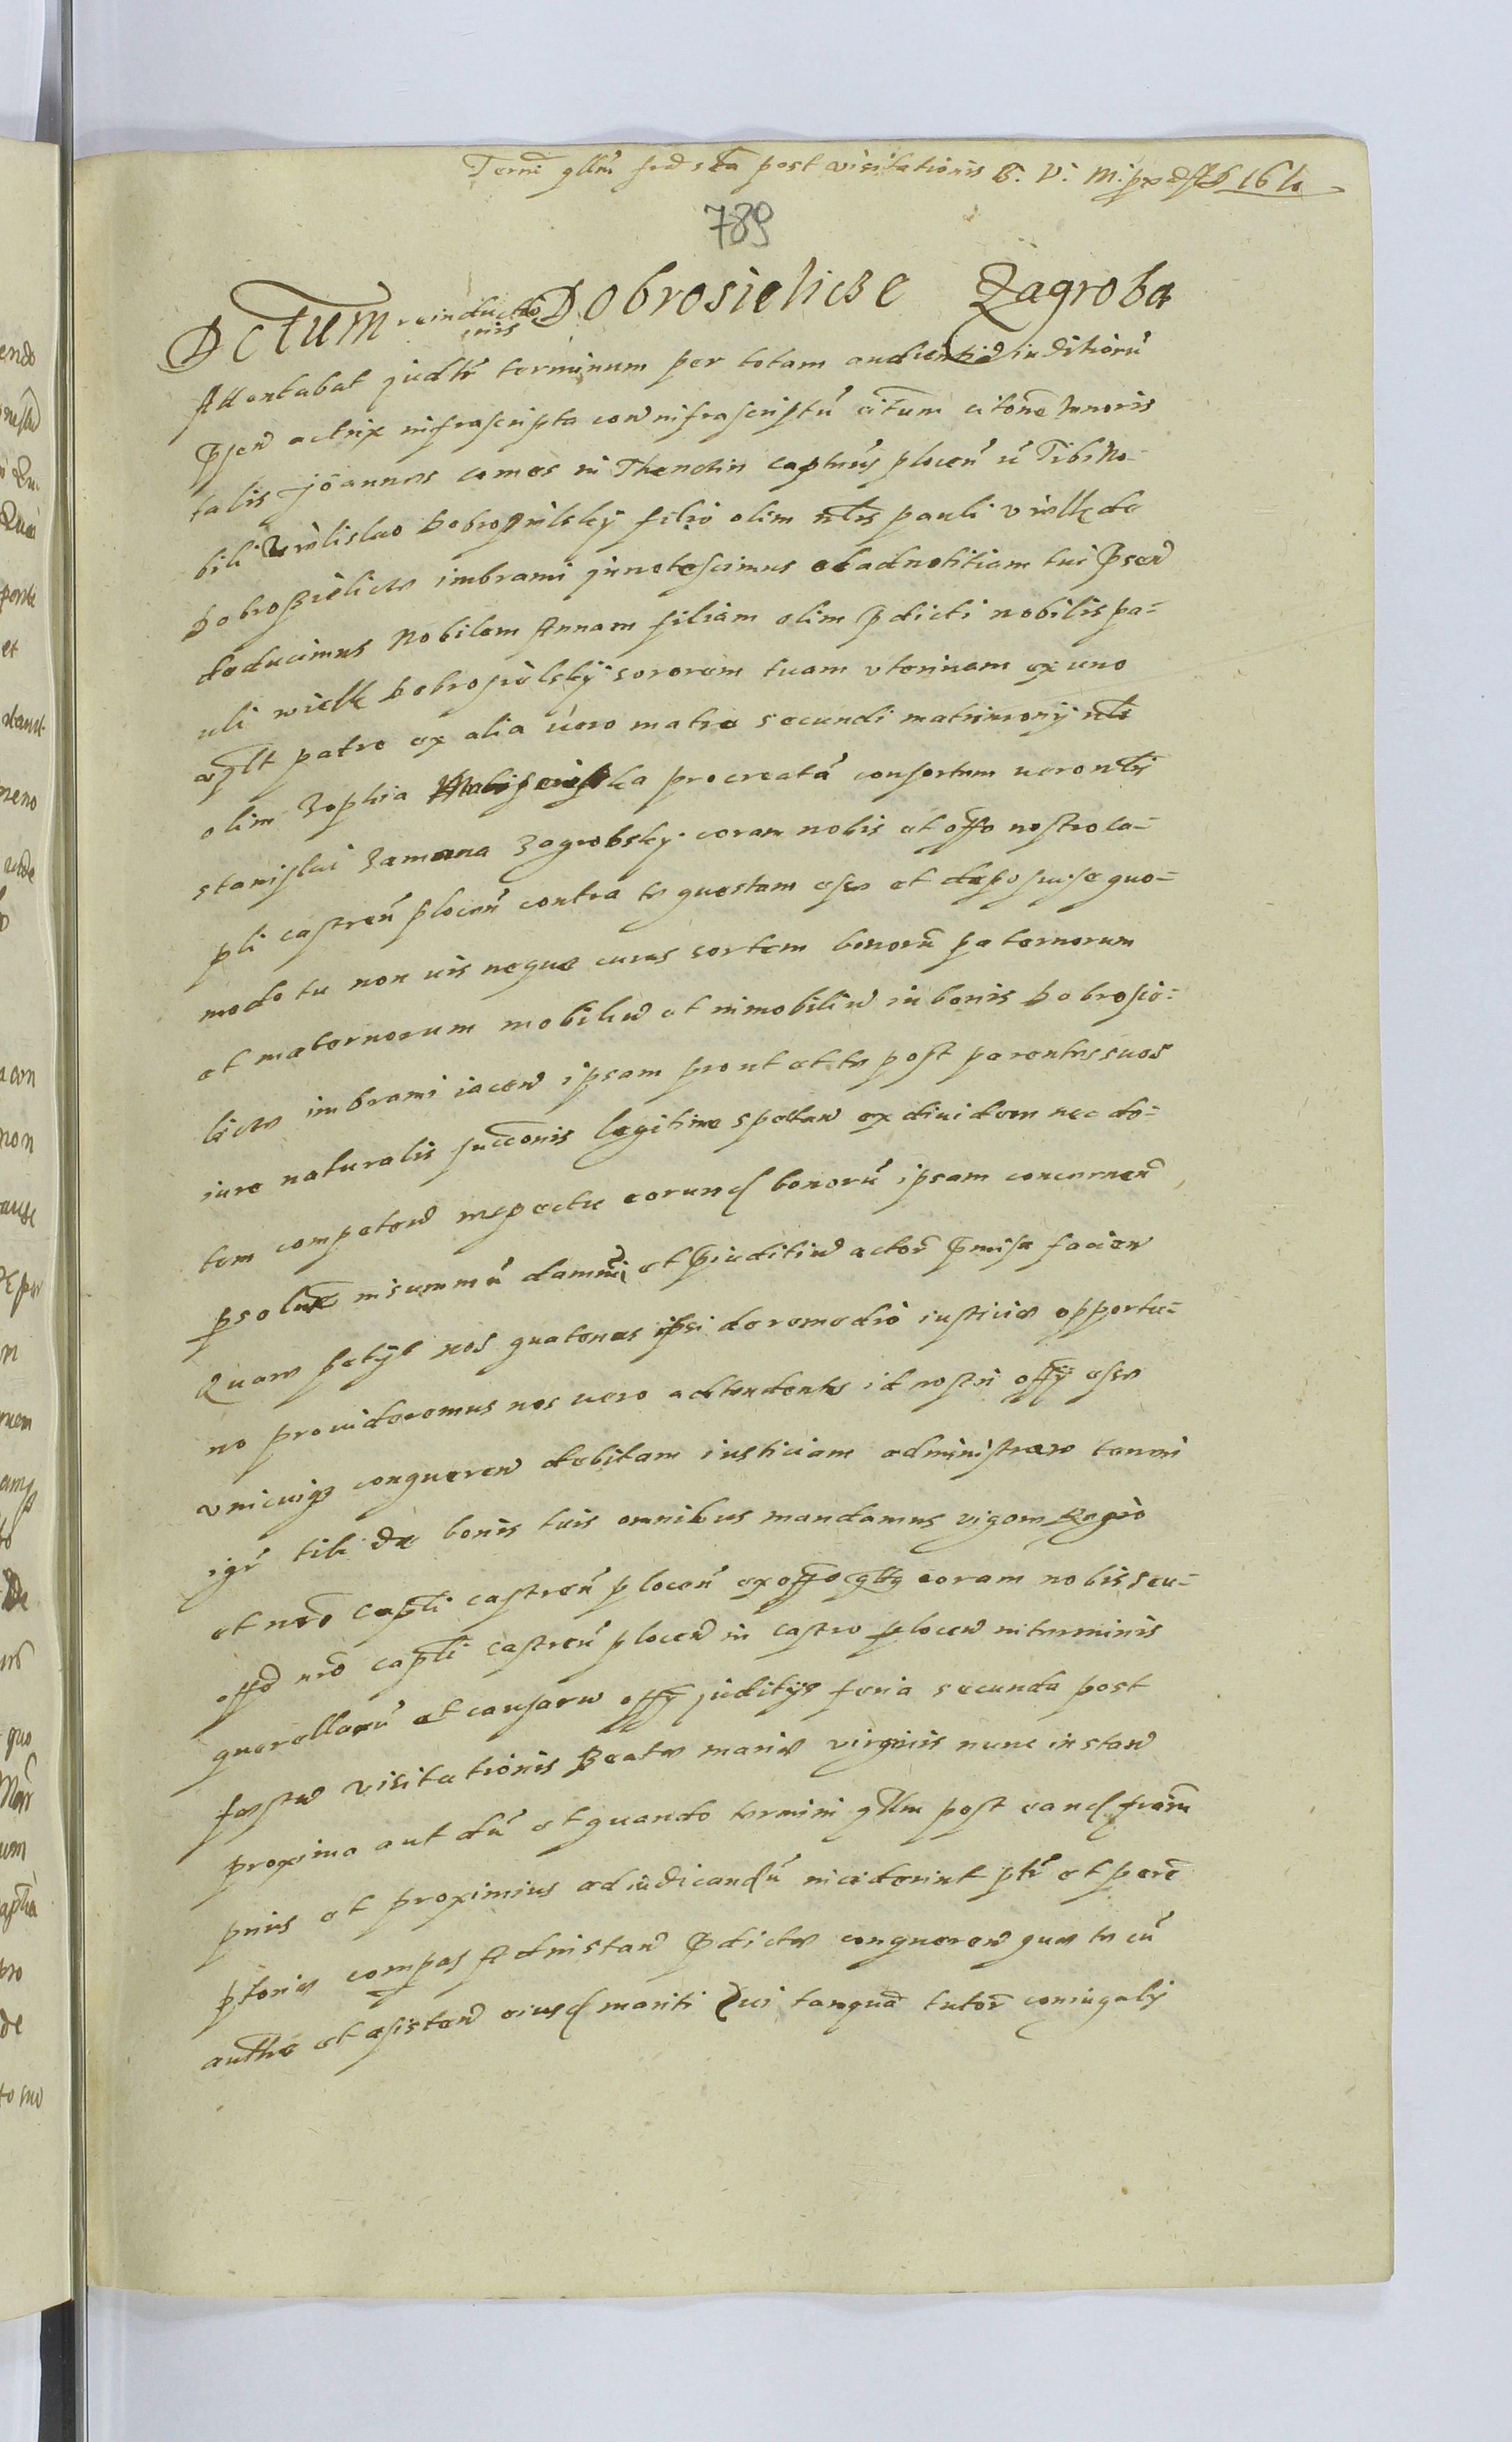 Termi gllni fed 2da post visitationis B. V. M. px
789
Actum reinductionis Dobrosielicze Zagroba
Attentabat judtr terminum per totam audientia iuditioru
psen actrix infrascripta con infrascriptu citum citone tenoris
talis Joannes comes in Thenchin captneus plocen etc Tibi No-
bili Wenislao Dobrosielsky filio olim nlis pauli wielk de
Dobrosielicze imbrami innotescimus et ad notitiam tui psen
deducimus Nobilem Annam filiam olim pdicti nobilis pa-
uli wielk Dobrosielsky sororem tuam vterinam ex uno
patre ex alia vero matre secundi matrimonij nle
olim Zophia procreata consortem vero nlis
stanislai Zamena Zagrobsky coram nobis et offo nostro ca-
pli castren plocen contra te questam esse et deposuisse quo-
modo tu non vis neque curas sortem bonoru paternorum
et maternorum mobiliu et immobiliu in bonis Dobrosie-
licze imbrami iacen ipsam prout et te post parentes suos
iure naturalis succonis legitime spectan ex dividere nec do-
tem competen respectu eorund bonoru ipsam concernen
psoluere in summu damnu et piuditiu actor pmissa facien
Quare petijt nos quatenus ipsi de remedio iusticiae opportu-
no provideremus nos vero attendentes id nostri offy esse
vnicuiq conqueren debitam iusticiam administrare tenori
igr tibi de bonis tuis omnibus mandamus vigore Regio
et nro capli castren plocen ex offo coram nobis seu-
offo nro capli castren plocen in castro plocen in terminis
querellaru et causaru offy juditijs feria secunda post
festu visitationis Beatae mariae virginis nunc instan
proxima aut du et quando termini gllni post eand feriam
prius et proximius ad iudicandu inciderint ptr et pere
ptorie compas Ad instan pdictae conqueren quae te cu
authe et assisten eiusd mariti Qui tanqua tutor coniugalis